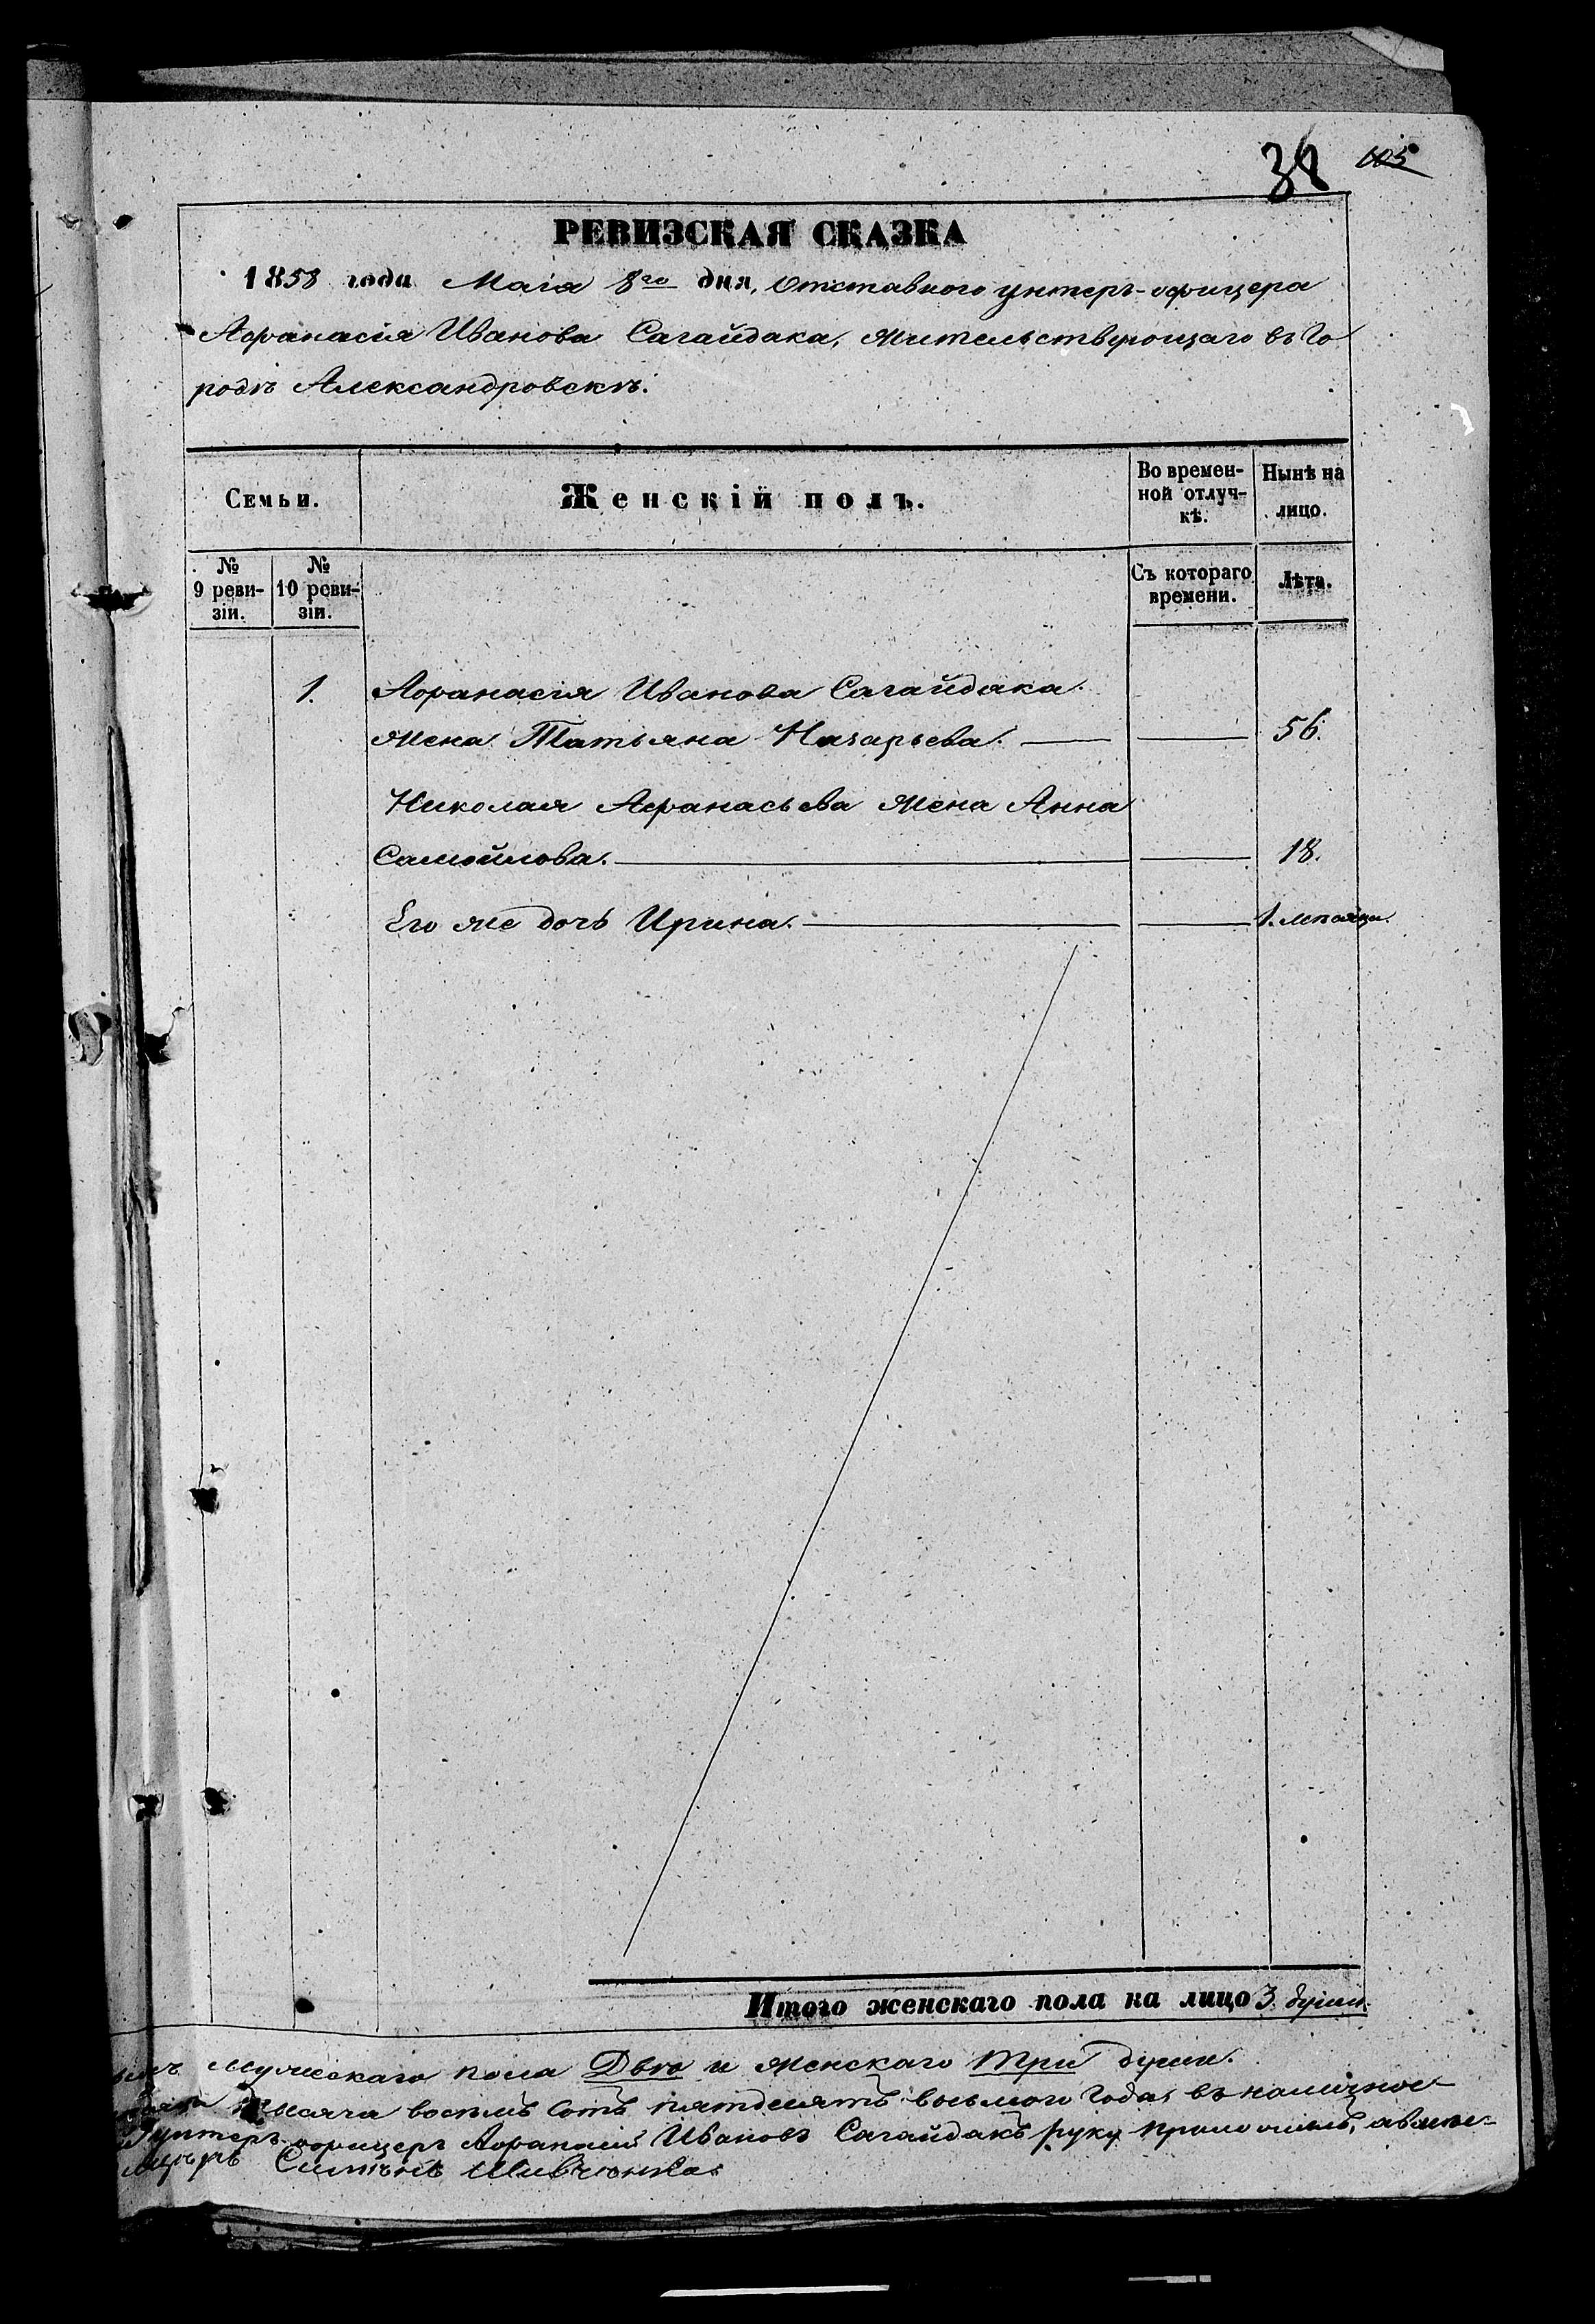 38 105
РЕВИЗСКАЯ СКАЗКА
1858 года Маія 8го дня, Отставного унтеръ-офицера
Афанасія Иванова Сагайдака, жительствующаго въ Го
родѣ Александровскѣ.
Семьи. Женскій полъ. Во времен-ной отлуч-кѣ. Нынѣ на лицо.
№ 9 реви-зіи. № 10 реви-зіи. Съ котораго времени. Лѣта.
1. Афанасія Иванова Сагайдака
жена Татьяна Назарьева. 56.
Николая Афанасьева жена Анна
Самойлова. 18.
Его же дочь Ирина. 1. мѣсяца.
Итого женскаго пола на лицо 3. души.
мужескаго пола Двѣ и женскаго три души.
тысяча восемь сотъ пятдесятъ восьмого года, въ наличное
Унтеръ-офицеръ Афанасій Ивановъ Сагайдакъ руку приложилъ, а вмѣс-